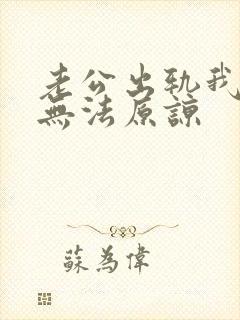 老公出軌我
無法原諒
蘇為偉